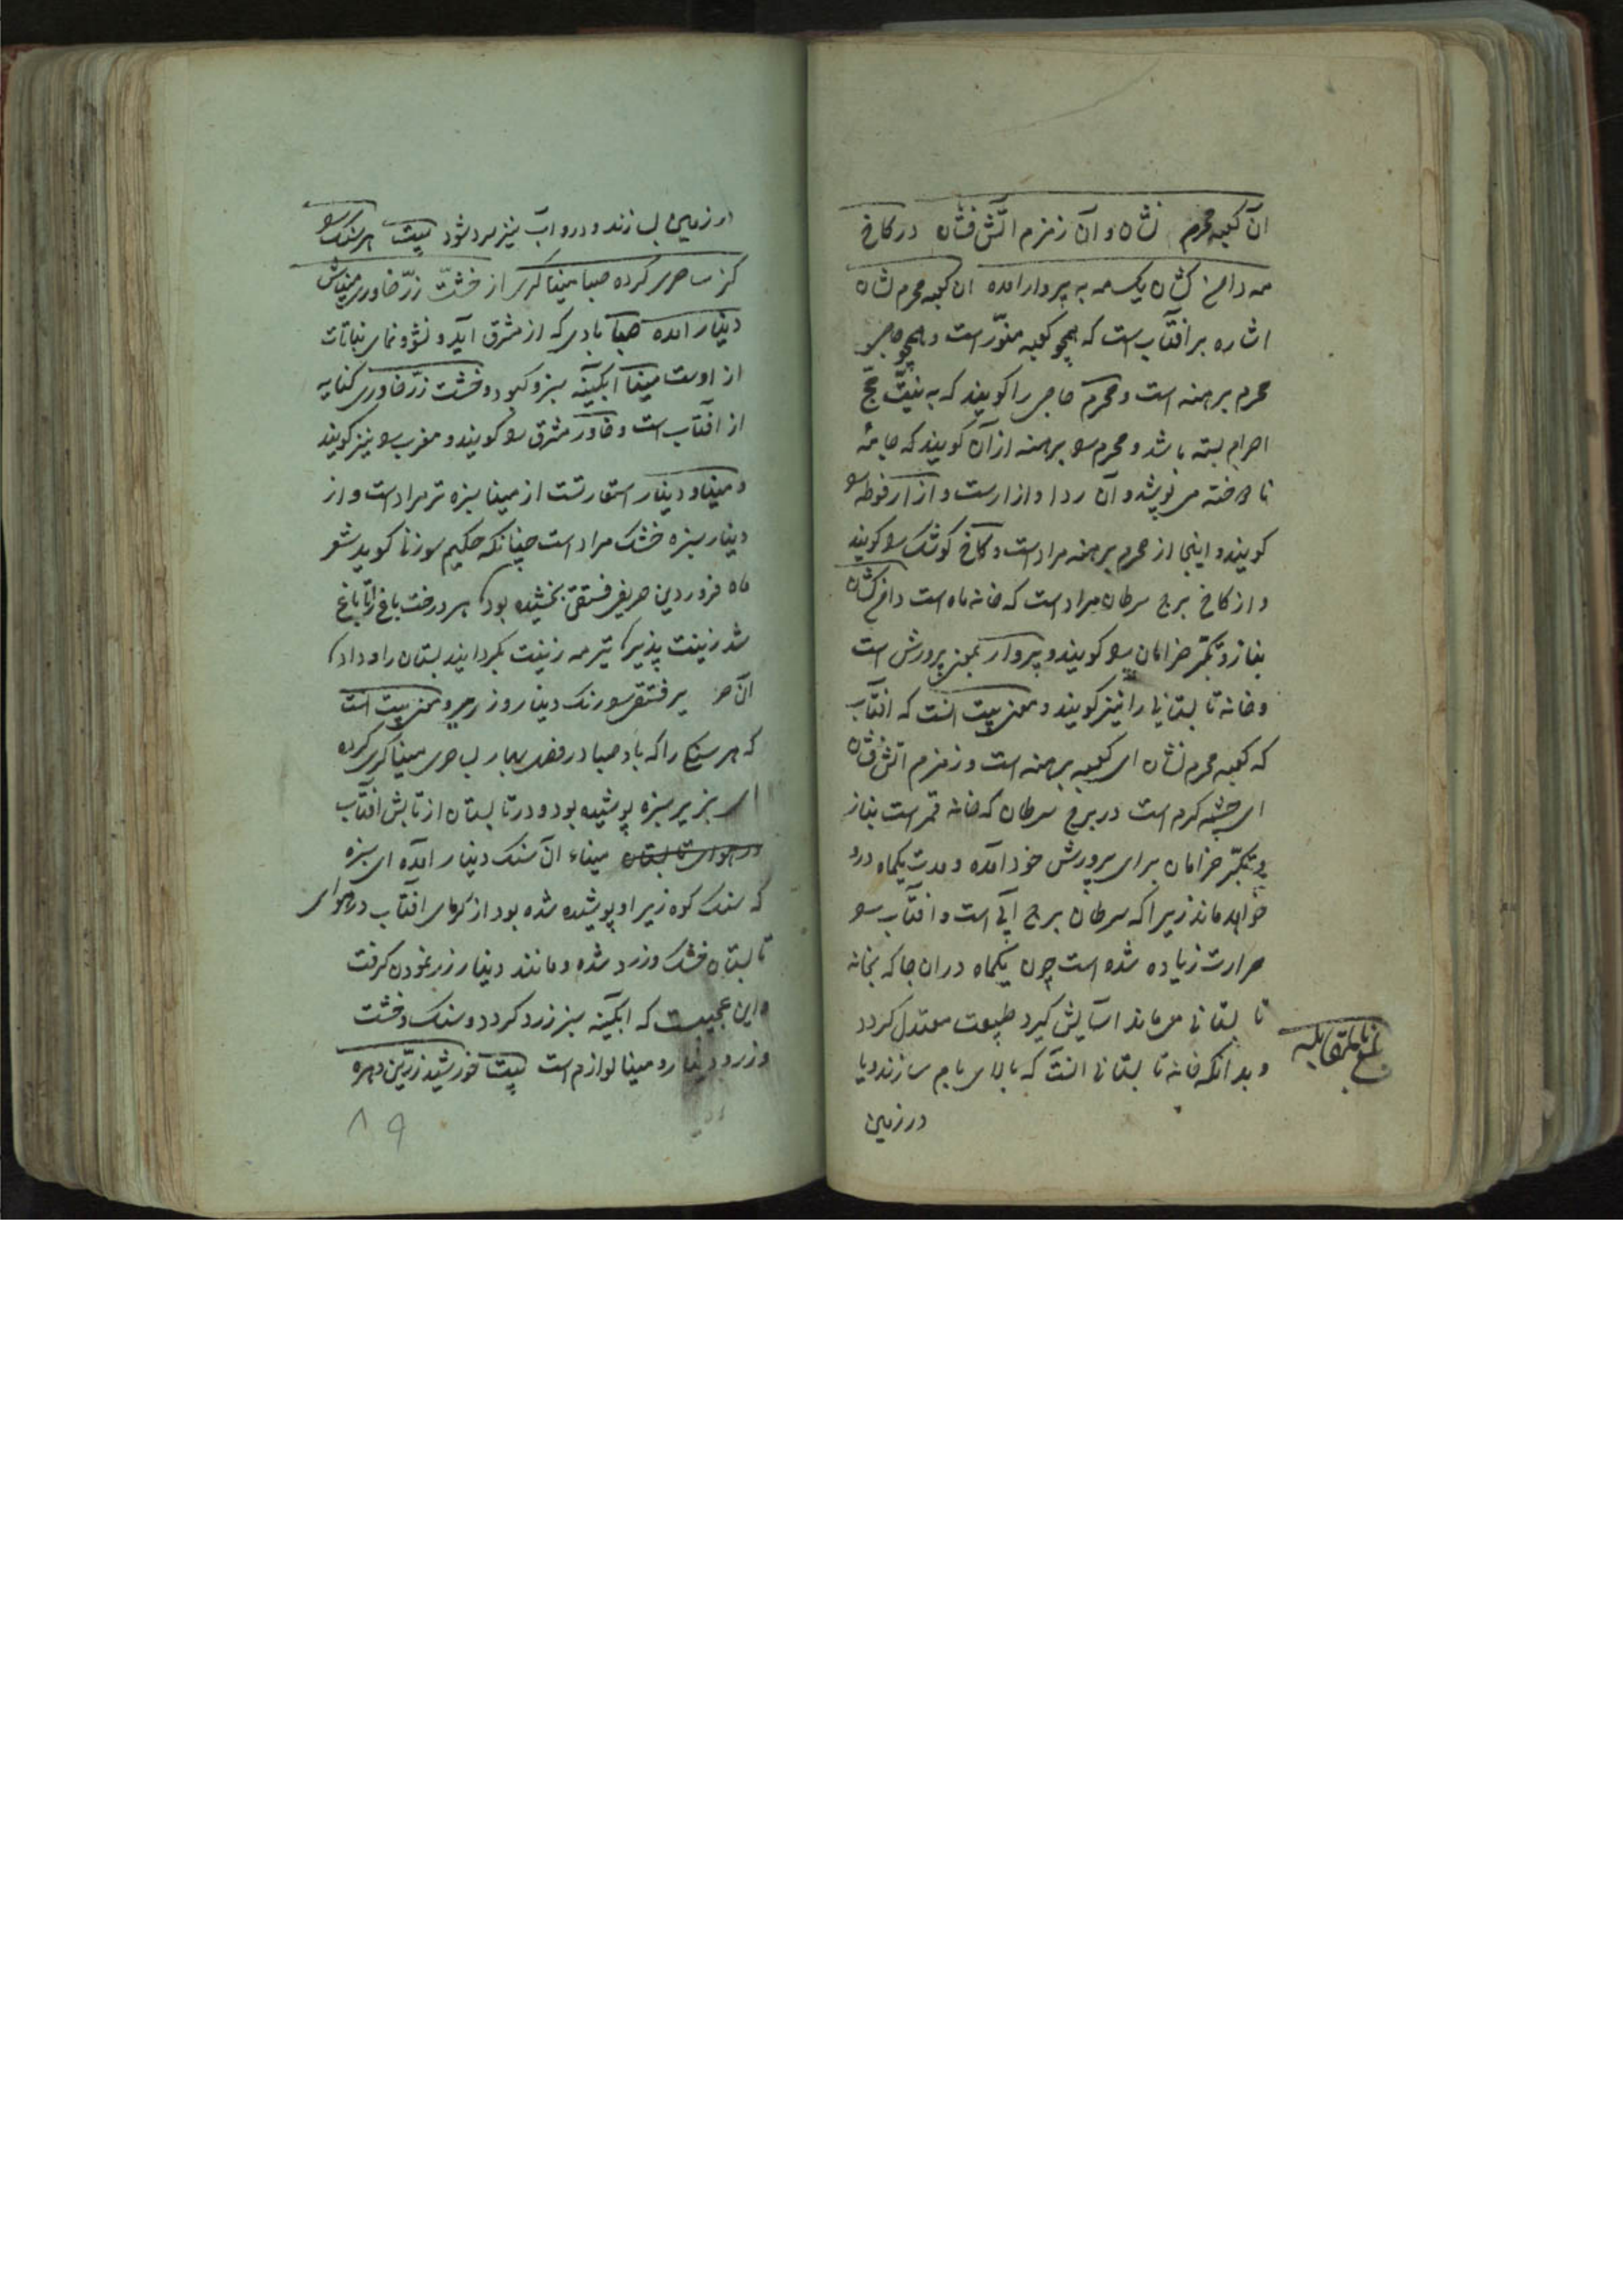 آن کعبه محرم نشان و آن زمزم آتش فشان در کاخ
مه دامن کشان یک مه به پروار آمده ان کعبه محرم نشان
اشاره بر افتاب است که همچو کعبه منوّر است و همچو حاجی
محرم برهنه است و محرم حاجی را کویند که به نیّت حجّ
احرام بسته باشد و محرم را برهنه از آن کویند که جامهٔ
نادوخته می پوشد و آن ردا و ازارست و ازار فوطه را
کویند و اینجا از محرم برهنه مراد است و کاخ کوشک را کویند
و از کاخ برج سرطان مراد است که خانه ماه است دامن کشان
بناز و تکبّر خرامان را کویند و پروار بمعنی پرورش است
و خانه تابستانی را نیز کویند و معنی بیت انست که افتاب
که کعبه محرم نشان ای کعبه برهنه است و زمزم آتش فشان
ای چشمه کرم است در برج سرطان که خانه قمر است بناز
و تکبّر خرامان برای پرورش خود آمده و مدت یکماه درو
خواهد ماند زیرا که سرطان برج آبی است و افتاب را
حرارت زیاده شده است چون یکماه دران جا که بخانه
تابستانی می ماند اسایش کیرد طبیعت معتدل کردد
و بدانکه خانه تابستانی انست که بالای بام سازند و یا
در زمین
بلغ بالمقابله
در زمین سازند و درو آب نیز سرد شود بیت هر سنک را
کز ساحری کرده صبا مینا کری از خشت زرّ خاوری میناش
دینار آمده صبا بادی که از مشرق آید و نشو و نمای نباتات
از اوست مینا ابکینه سبز و کبود و خشت زرّ خاوری کنایه
از افتاب است و خاور مشرق را کویند و مغرب را نیز کویند
و مینا و دینار استعارتست از مینا سبزه تر مراد است و از
دینار سبزه خشک مراد است چنانکه حکیم سوزنی کوید شعر
ماه فروردین حریر فستقی بخشیده بود هر درخت باغ را تا باغ
شد زینت پذیر تیر مه زینت بکردانید بستان را و داد
آن حریر فستقی را رنک دینار و زریر و معنی بیت است
که هر سنکی را که باد صبا در فصل بهار بساحری مینا کری کرده
ای بزیر سبزه پوشیده بود و در تابستان از تابش افتاب
در هوای تابستان میناء آن سنک دینار آمده ای سبزه
که سنک کوه زیر او پوشیده شده بود از کرمای افتاب در هوای
تابستان خشک و زرد شده و مانند دینار زر نمودن کرفت
و این عجیبست که ابکینه سبز زرد کردد و سنک و خشت
و زر و دینار و مینا لوازم است بیت خورشید زرّین دهره
۸۹